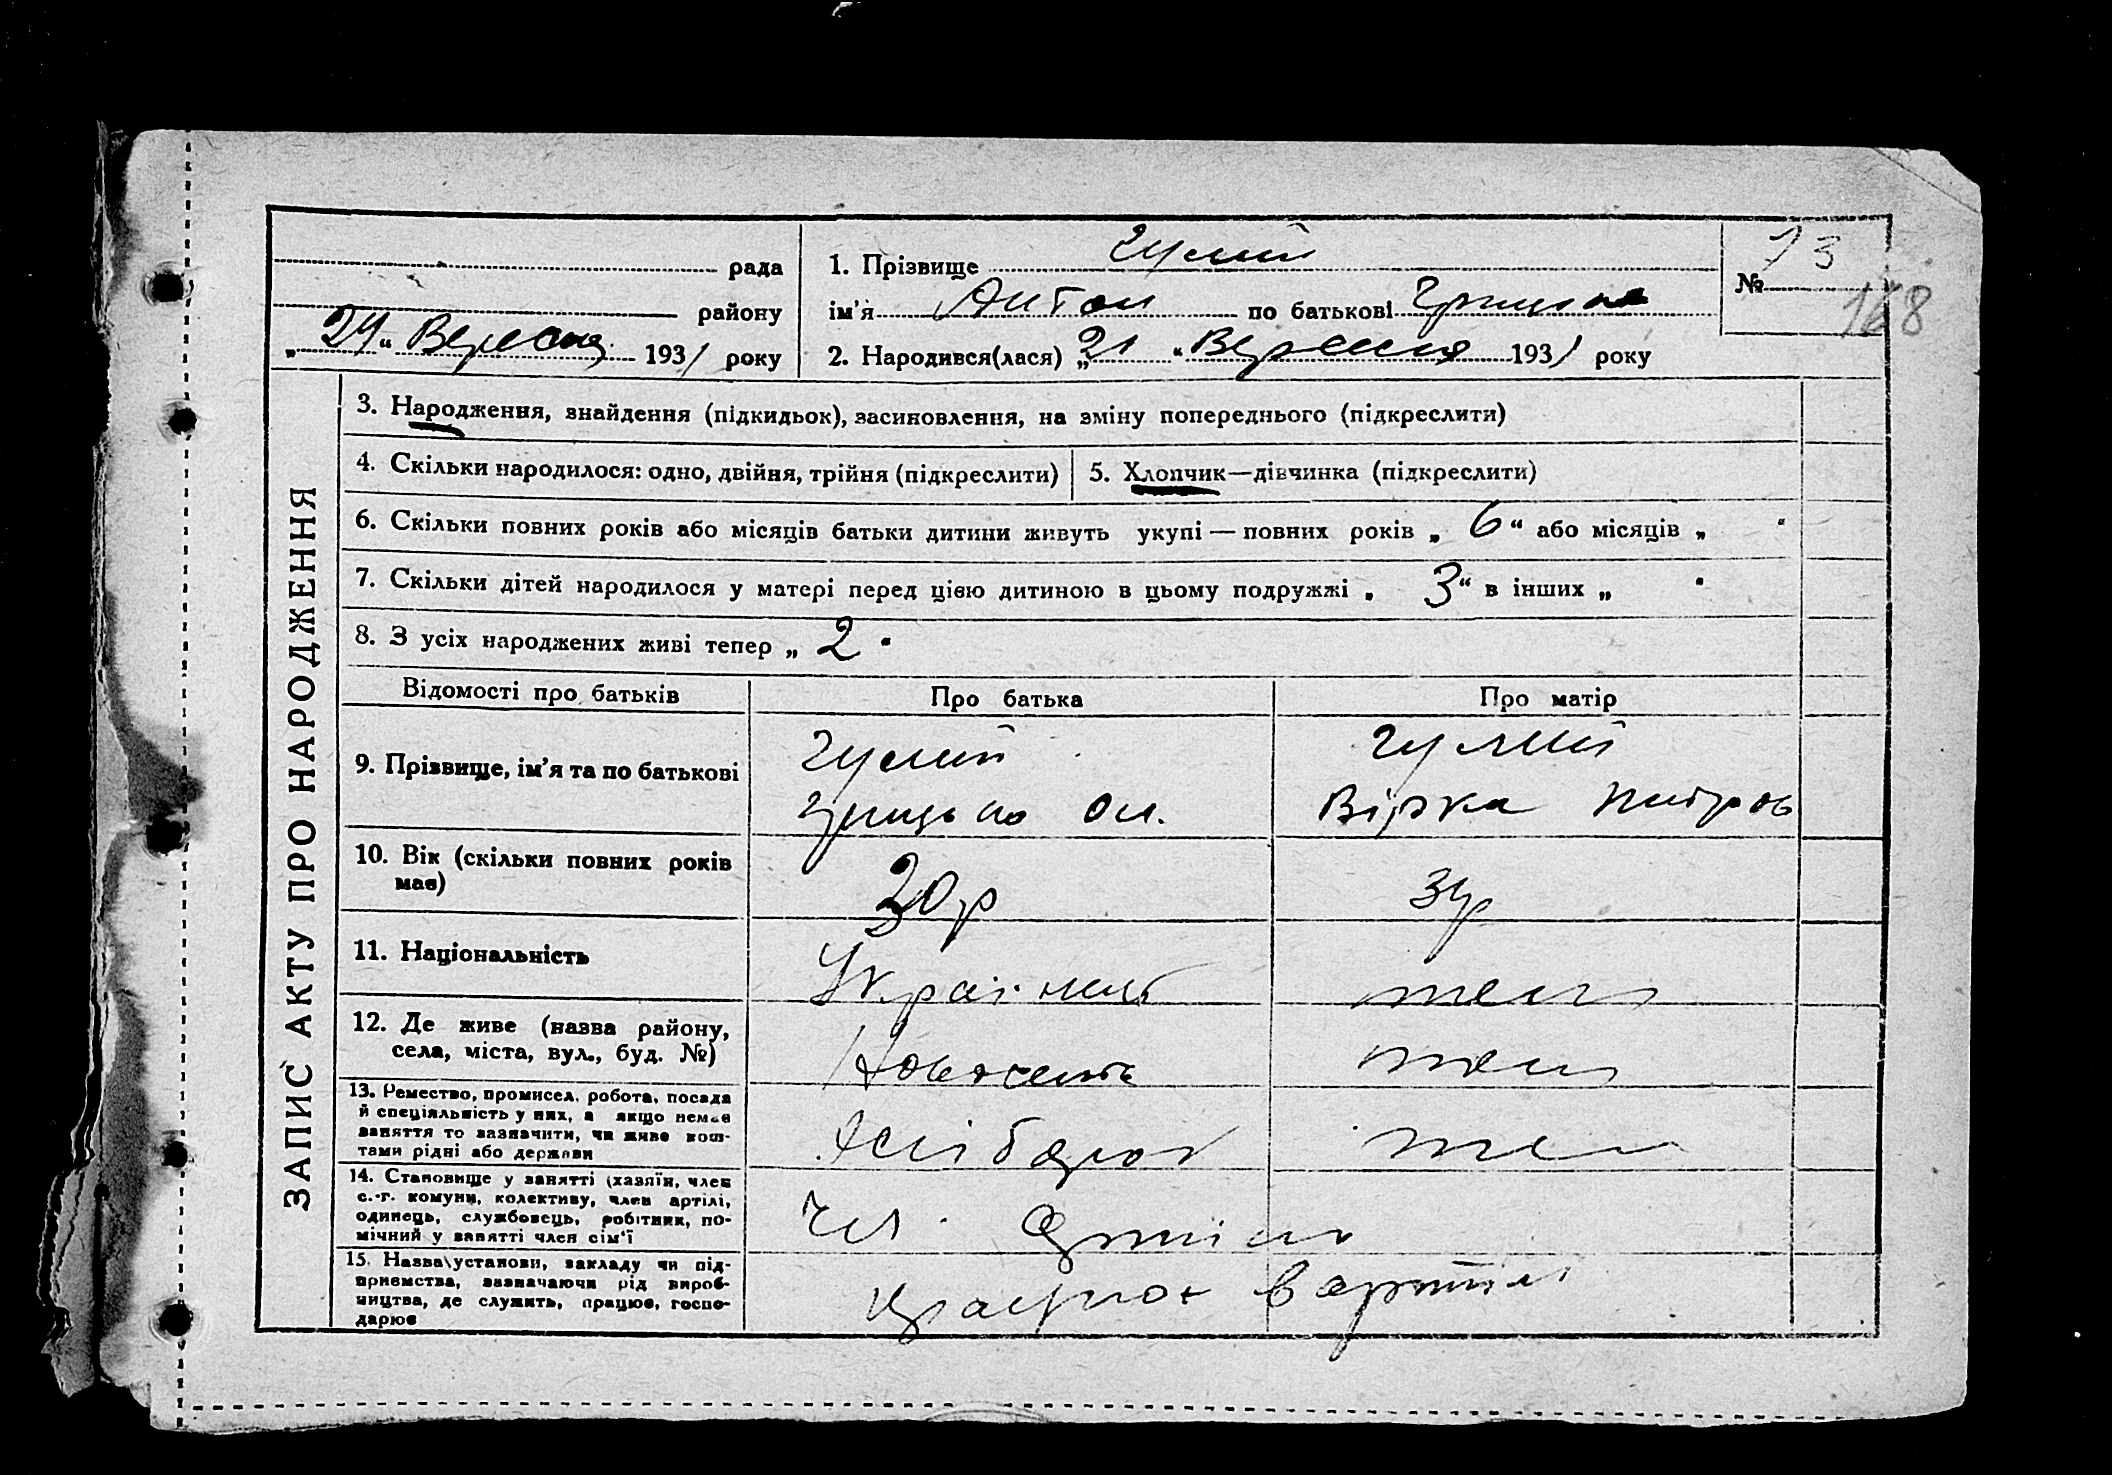 рада
району
„ 24 “ Вересня 1931 року
1. Прізвище Гулий
ім’я Антон по батькові
2. Народився(лася) „ 21 “ Вересня 1931 року
№ 73
168
ЗАПИС АКТУ ПРО НАРОДЖЕННЯ
3. Народження, знайдення (підкидьок), засиновлення, на зміну попереднього (підкреслити)
4. Скільки народилося: одно, двійня, трійня (підкреслити)
5. Хлопчик—дівчинка (підкреслити)
6. Скільки повних років або місяців батьки дитини живуть укупі — повних років „ 6 “ або місяців „ “
7. Скільки дітей народилося у матері перед цією дитиною в цьому подружжі „ 3 “ в інших „ “
8. З усіх народжених живі тепер „ 2 “
Відомості про батьків
Про батька
Про матір
9. Прізвище, ім’я та по батькові
Гулий
Грицько Ол.
Гулий
Вірка Петров
10. Вік (скільки повних років
має)
30 р
11. Національність
Українець
12. Де живе (назва району,
села, міста, вул., буд. №)
13. Ремество, промисел, робота, посада
й спеціяльність у них, а якщо немає
заняття то зазначити, чи живе кош-
тами рідні або держави
Хлібороб
14. Становище у занятті (хазяїн, член
с.-г. комуни, колективу, член артілі,
одинець, службовець, робітник, по-
мічний у занятті член сім’ї
Чл.
15. Назва установи, закладу чи під-
приємства, зазначаючи рід вироб-
ництва, де служить, працює, госпо-
дарює
працює в артілі